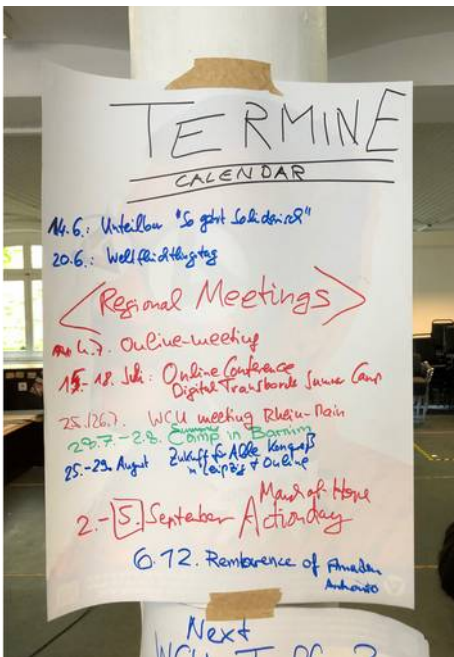 TERMINE
CALENDAR
14.6.: Unteilbar "So geht Solidarisch"
20.6.: Weltflüchtlingstag
<Regional Meetings>
4.7. Online-meeting
15.-18. Juli: Online Conference
Digital Transborder Summer Camp
25./26.7. WCU meeting Rhein-Main
Summer
28.7.-2.8. Camp in Barnim
25.-29. August Zukunft für Alle Kongreß
in Leipzig + Online
March of Hope
2.-5. September Actionday
6.12. Rembarence of Amadeu
Antonio
Next
WCU